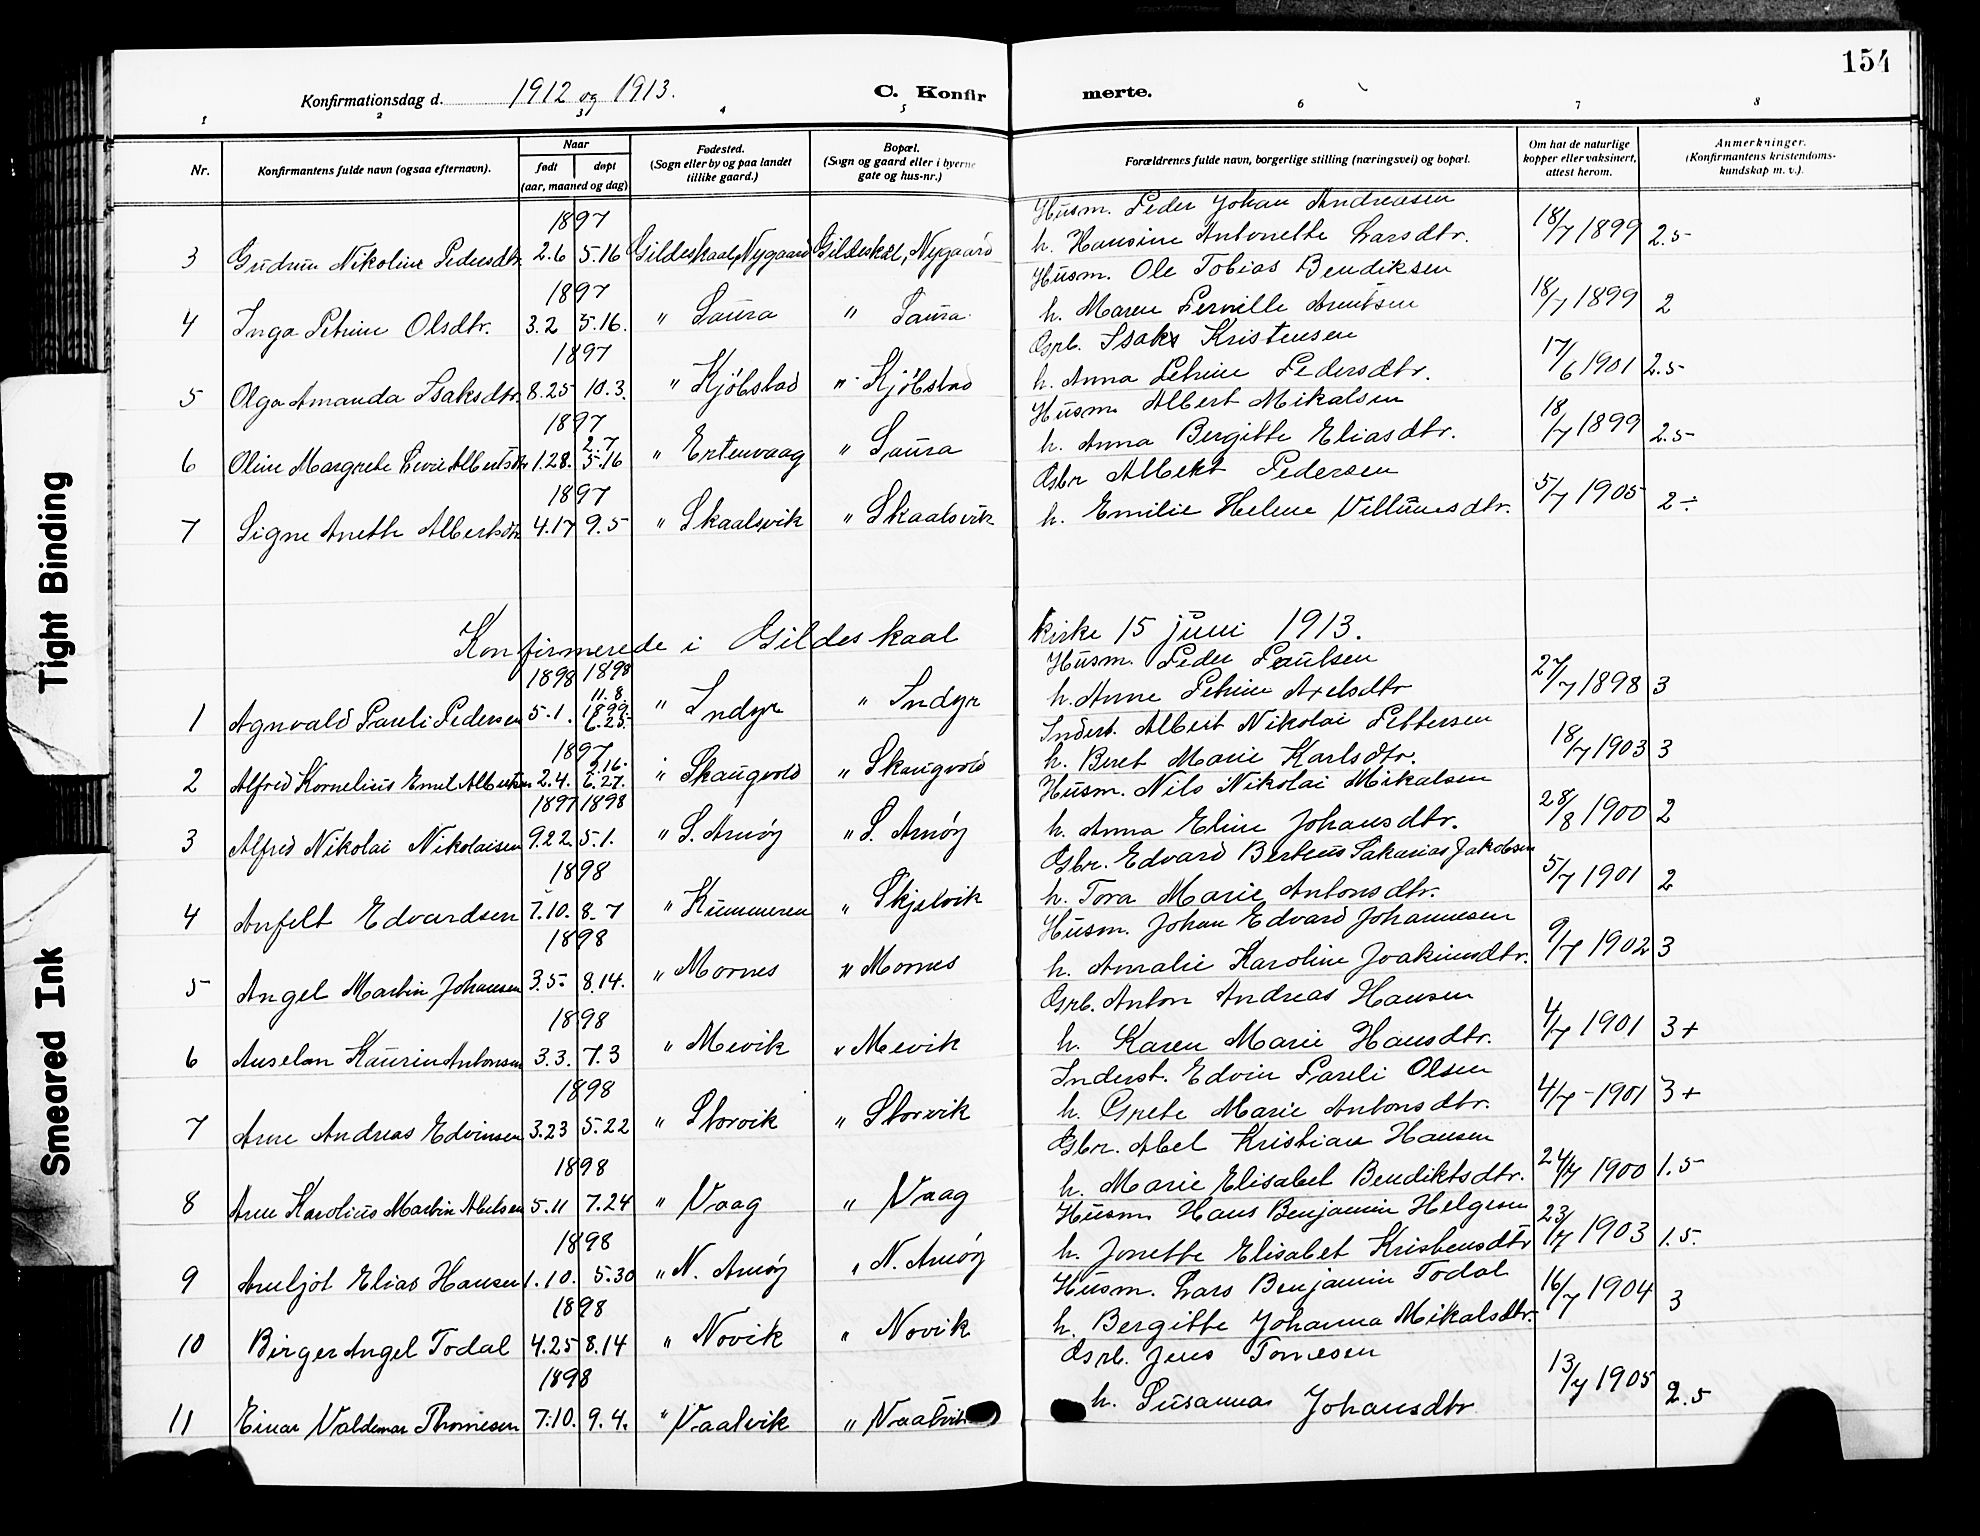 154
Konfirmationsdag d. 1912 og 1913. C. Konfirmerte.
1 2 3 4 5 6 7 8
Nr. Konfirmantens fulde navn (ogsaa efternavn). Naar født døpt (aar, maaned og dag) Fødested. (Sogn eller by og paa landet tillike gaard.) Bopæl. (Sogn og gaard eller i byerne gate og hus-nr.) Forældrenes fulde navn, borgerlige stilling (næringsvei) og bopæl. Om hat de naturlige kopper eller vaksinert, attest herom. Anmerkninger. (Konfirmantens kristendoms-kundskap m. v.).
1897 Husm. Peder Johan Andreasen
3 Gudrun Nikoline Pedersdtr. 2.6 5.16 Gildeskaal, Nygaard Gildeskal, Nygaard h. Hansine Antonette Larsdtr. 18/7 1899 2.5
1897 Husm. Ole Tobias Bendiksen
4 Inga Petrine Olsdtr. 3.2 5.16. " Saura " Saura. h. Maren Pernille Arntsen 18/7 1899 2
1897 Gprb. Isaks Kristensen
5 Olga Amanda Isaksdtr. 8.25 10.3. " Kjöbstad " Kjöbstad h. Anna Petrine Pedersdtr. 17/6 1901 2.5
1897 Husm. Albert Mikalsen
6 Oline Margrete Albertsdtr 1.28. 2.7. 5.16 " Ertenvaag " Saura h. Anna Bergitte Eliasdtr. 18/7 1899 2.5
1897 Gbr Albert Pedersen
7 Signe Aneth Albertsdtr 4.17 9.5 " Skaalsvik " Skaalsvik h. Emilie Helene Villumsdtr. 5/7 1905 2÷
Konfirmerede i Gildeskaal kirke 15 juni 1913.
1898 1898 11.8. 1899 Husm. Peder Paulsen
1 Agnvald Pareli Pedersen 5.1. 6.25. " Indyr " Indyr h. Anne Petrine Axelsdtr 27/7 1898 3
1897 5.16. Inderst. Albert Nikolai Pettersen
2 Alfred Kornelius Emil Albertsen 2.4. 6.27. " Skaugvold " Skaugvold h. Beret Marie Karlsdtr. 18/7 1903 3
1897 1898 Husm. Nils Nikolai Mikalsen
3 Alfred Nikolai Nikolaisen 9.22. 5.1. " S. Arnöy " S. Arnöy h. Anna Eline Johansdtr. 28/8 1900 2
1898 Gbr. Edvard Berteus Sakarias Jakobsen
4 Anfelt Edvardsen 7.10. 8.7 " Kummeren " Skjelvik h. Tora Marie Antonsdtr. 5/7 1901 2
1898 Husm. Johan Edvard Johannesen
5 Angel Martin Johansen 3.5. 8.14. " Mornes " Mornes h. Amalie Karoline Joakimsdtr. 9/7 1902 3
1898 Gprb. Anton Andreas Hansen
6 Anselan Kaurin Antonsen 3.3. 7.3 " Mevik " Mevik h. Karen Marie Hansdtr. 4/7 1901 3+
1898 Inderst. Edvin Pareli Olsen
7 Arne Andreas Edvinsen 3.23 5.22 " Storvik " Storvik h. Grete Marie Antonsdtr. 4/7 - 1901 3+
1898 Gbr. Abel Kristian Hansen
8 Arne Karolius Martin Abelsen 5.11 7.24 " Vaag " Vaag h. Marie Elisabet Bendiktsdtr. 24/7 1900 1.5
1898 Husm Hans Benjamin Helgesen
9 Arnljot Elias Hansen 1.10. 5.30 " N. Arnöy " N. Arnöy h. Jonette Elisabet Kristensdtr 23/7 1903 1.5.
1898 Husm. Lars Benjamin Todal
10 Birger Angel Todal 4.25 8.14 " Novik " Novik h. Bergitte Johanna Mikalsdtr. 16/7 1904 3
1898 Gprb. Jens Tomesen
11 Einar Valdemar Thomesen 7.10. 9.4. " Vaalvik " Vaalvik h. Susanna Johansdtr 13/7 1905 2.5
Tight Binding
Smeared Ink